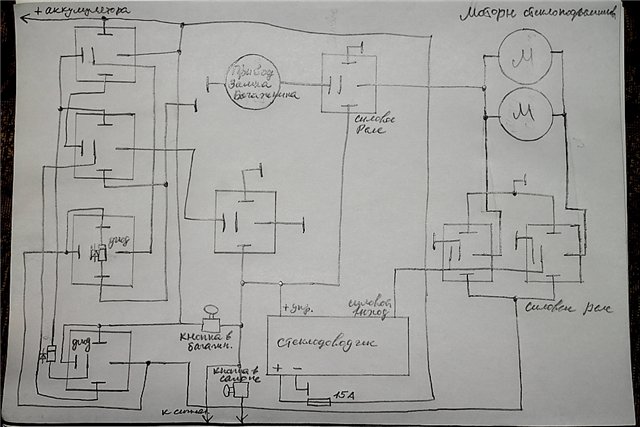 + аккумулятора
Моторы стеклоподъемников
Привод
Замка
Багажника
М
М
силовое
Реле
диод
+ упр.
силовой
выход
диод
Стеклодоводчик
Кнопка в
багажн.
силовые Реле
+ -
Кнопка в
салоне
15А
к сигнал.